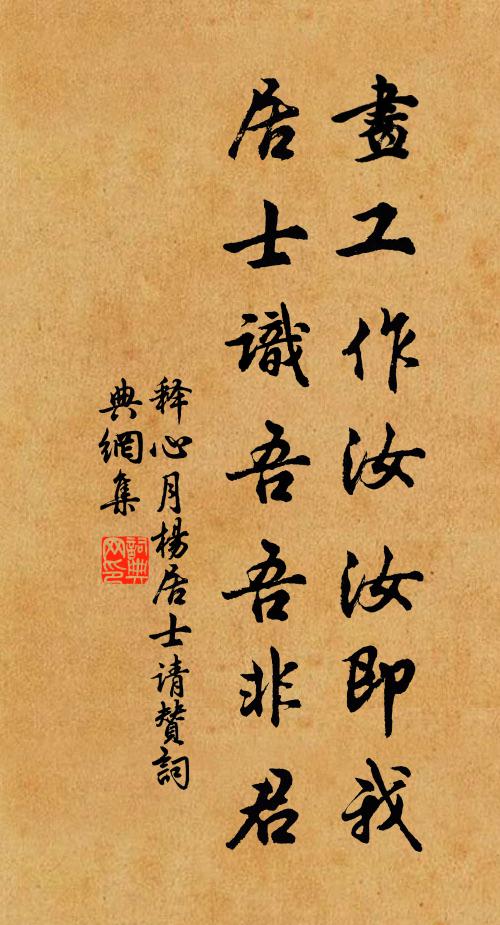 畫工作汝汝即我
居士識吾吾非君
释心月楊居士请赞詞
典網集
詞典网印